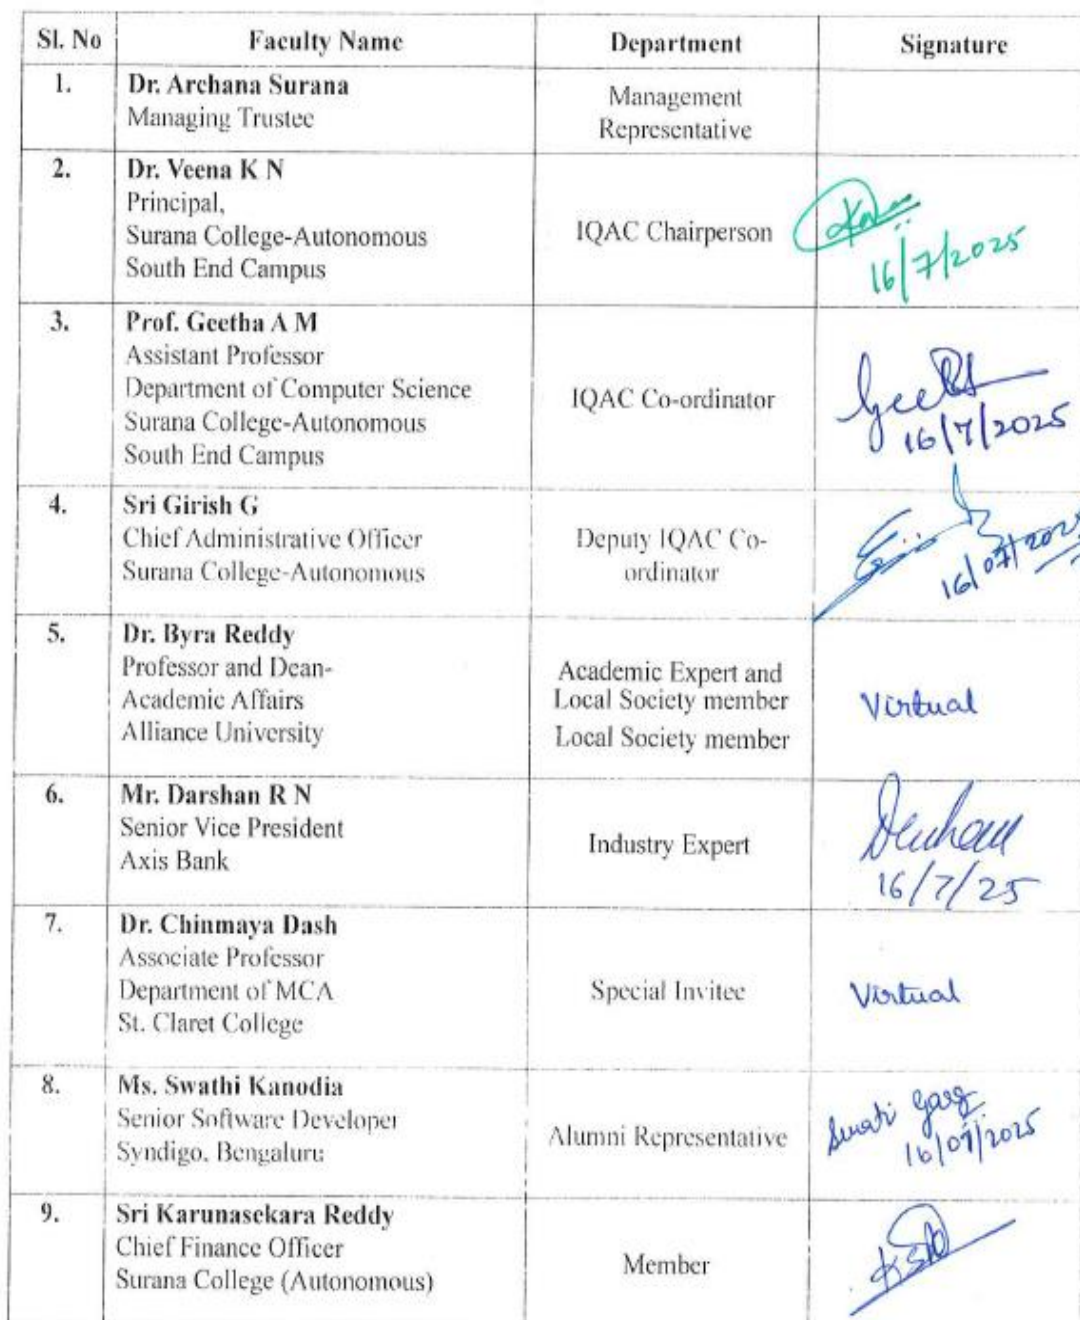 Sl. No Faculty Name Department Signature
1. Dr. Archana Surana
Managing Trustee
Management
Representative
2. Dr. Veena K N
Principal,
Surana College-Autonomous
South End Campus
IQAC Chairperson
16/7/2025
3. Prof. Geetha A M
Assistant Professor
Department of Computer Science
Surana College-Autonomous
South End Campus
IQAC Co-ordinator
Geetha
16/7/2025
4. Sri Girish G
Chief Administrative Officer
Surana College-Autonomous
Deputy IQAC Co-
ordinator
16/07/2025
5. Dr. Byra Reddy
Professor and Dean-
Academic Affairs
Alliance University
Academic Expert and
Local Society member
Local Society member
Virtual
6. Mr. Darshan R N
Senior Vice President
Axis Bank
Industry Expert
16/7/25
7. Dr. Chinmaya Dash
Associate Professor
Department of MCA
St. Claret College
Special Invitee
Virtual
8. Ms. Swathi Kanodia
Senior Software Developer
Syndigo, Bengaluru
Alumni Representative
Swati Garg
16/07/2025
9. Sri Karunasekara Reddy
Chief Finance Officer
Surana College (Autonomous)
Member